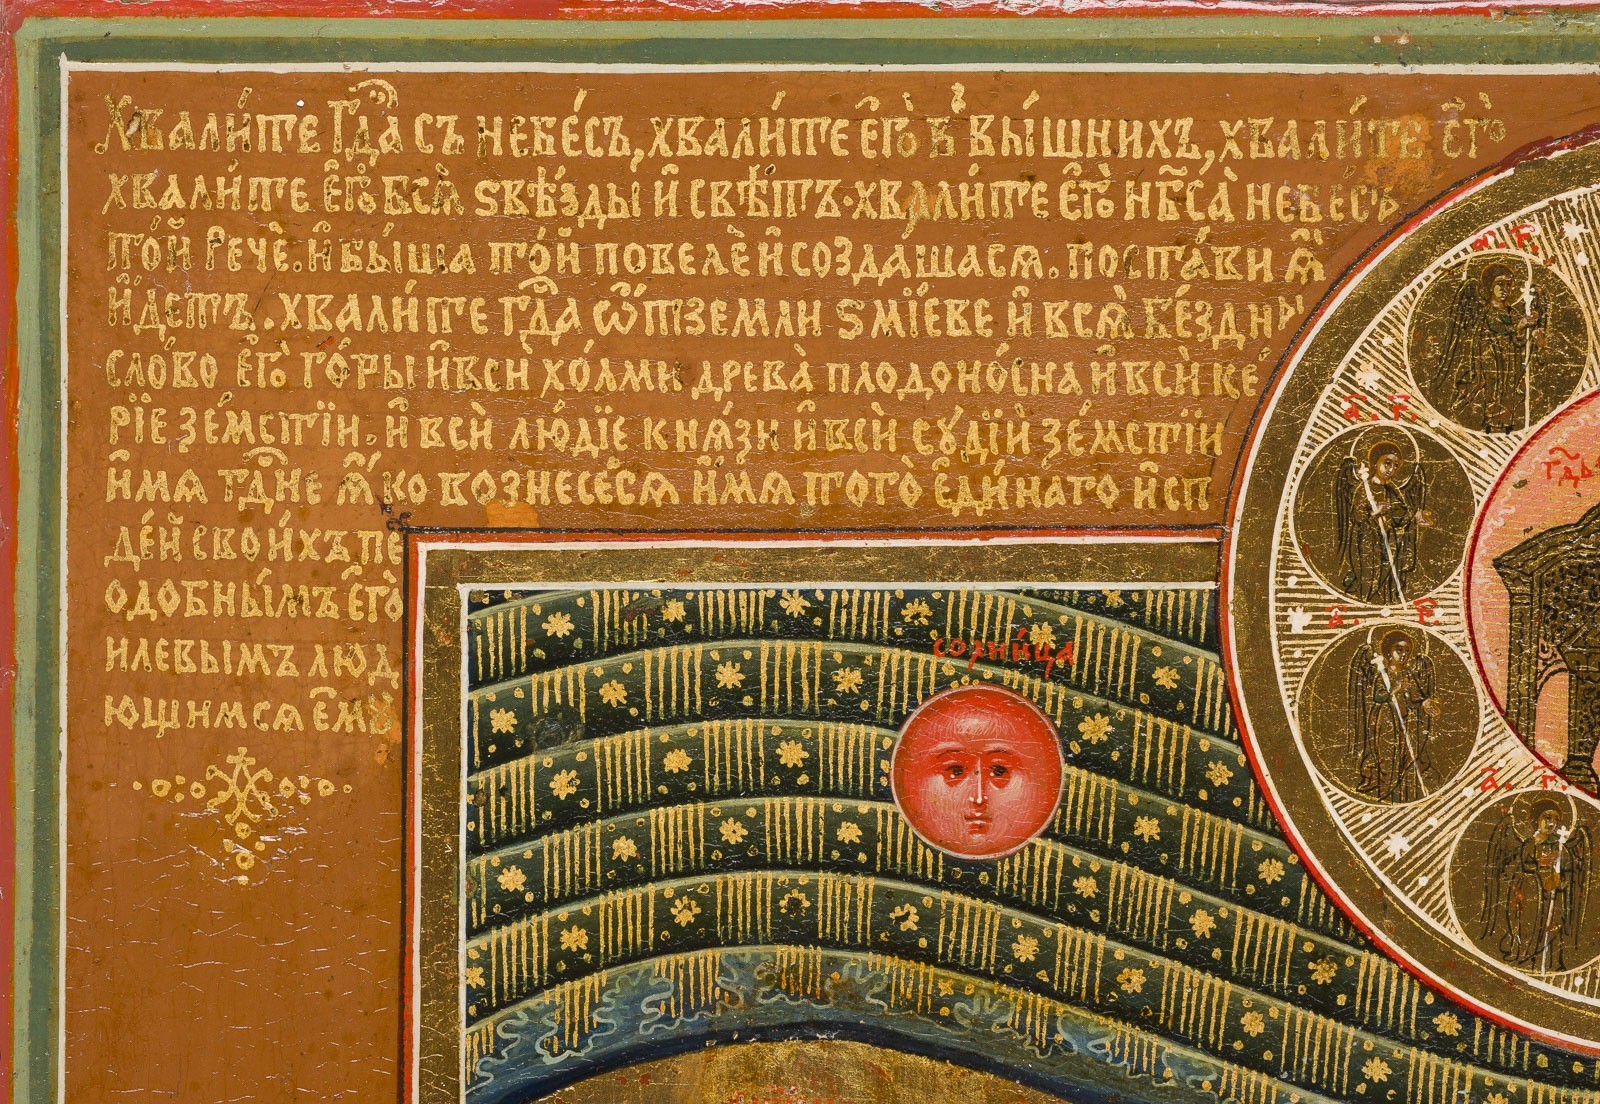 Хвали́те Гд҇а съ небе́съ, хвали́те є҆го̀ в вы́шнихъ, хвали́те є҆го̀
хвали́те є҆го̀ всѧ̀ ѕвѣ́зды и҆ свѣ́тъ · хвали́те є҆го̀ нб҃са̀ небе́съ
то́й речѐ. и҆ бы́ша то́й повелѐ и҆ создашасѧ. поста́ви ѧ҆̀
и҆́детъ. хвали́те гд҇а ѿ земли ѕмі́еве и҆ всѧ̀ бе́здны
сло́во є҆го̀ го́ры и҆ всѝ хо́лми древа̀ плодоно́сна и҆ всѝ ке́
рїе зе́мстїи. и҆ всѝ лю́дїе кнѧ́зи и҆ всѝ су́дїи зе́мстїи
и҆́мѧ гд҇не ѧ҆́ко вознесе́сѧ и҆́мѧ того̀ є҆ди́наго и҆сп
де́й свои́хъ пе
одобны́мъ є҆го̀
илевымъ люд
ющимсѧ є҆мꙋ
солни́ца
а҃. г҃.
а҃. г҃.
а҃. г҃.
а҃. г҃.